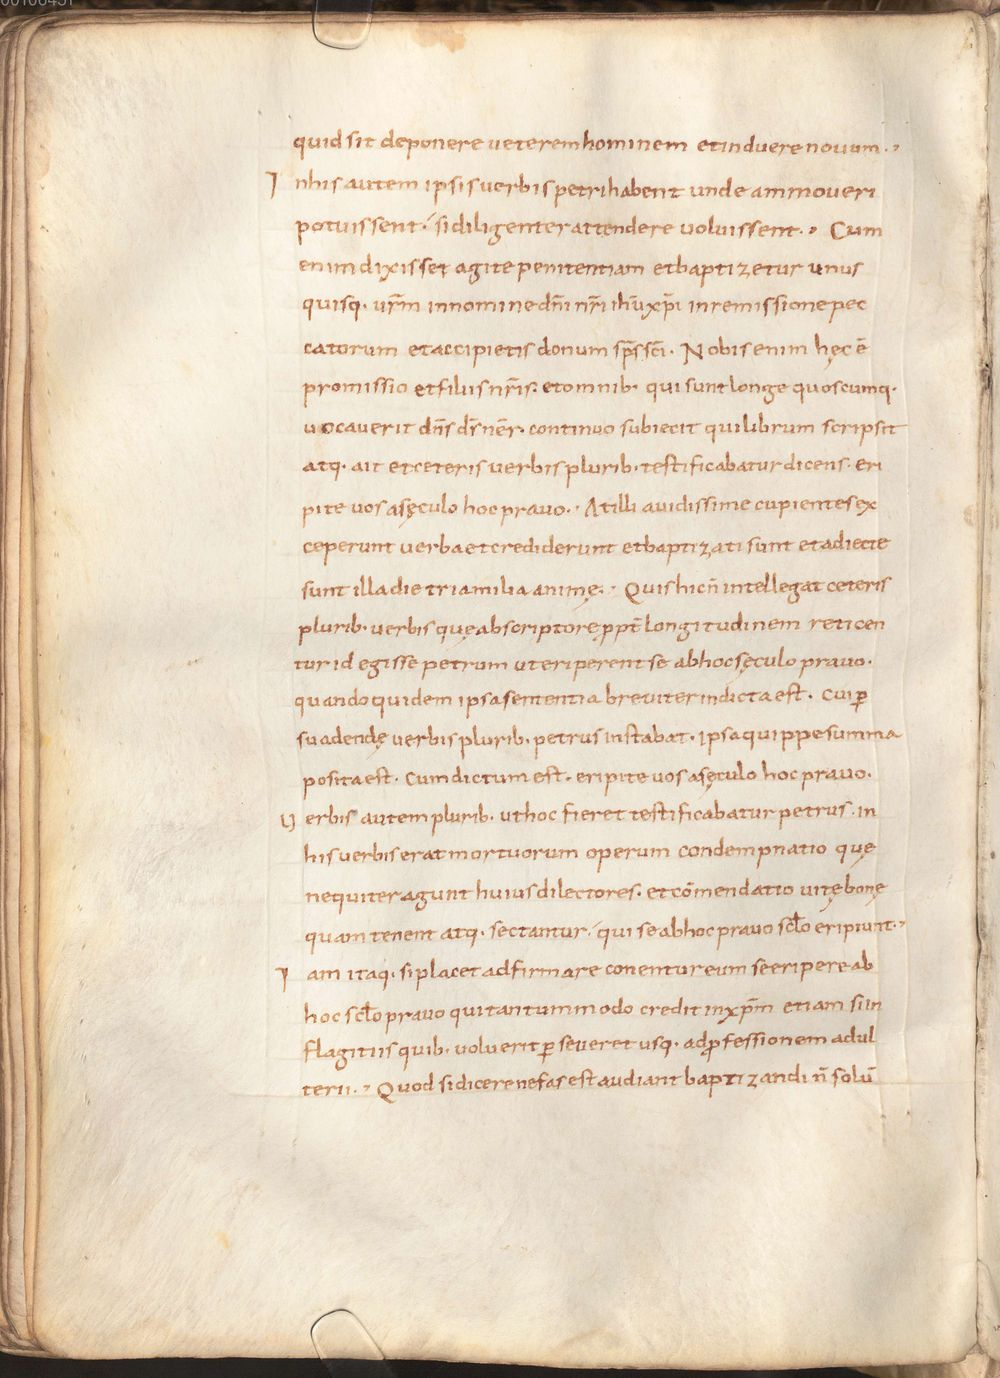 quid sit deponere ueterem hominem et induere nouum.,
In his autem ipsis uerbis petri habent unde ammoueri
potuissent. si diligenter attendere uoluissent., Cum
enim dixisset agite penitentiam et baptizetur unus
quisq. ur̄m in nomine dn̄i nr̄i ih̄u xp̄i in remissione pec
catorum et accipietis donum sp̄s sc̄i. Nobis enim hęc ē
promissio et filiis nr̄is. et omnib. qui sunt longe quoscumq.
uocauerit dn̄s ds̄ nēr. continuo subiecit qui librum scripsit
atq. ait et ceteris uerbis plurib. testificabatur dicens. eri
pite uos a sęculo hoc prauo., At illi auidissime cupientes ex
ceperunt uerba et crediderunt et baptizati sunt et adiecte
sunt illa die tria milia animę., Quis hic n̄ intellegat ceteris
plurib. uerbis quę ab scriptore ppt̄ longitudinem reticen
tur id egisse petrum ut eriperent se ab hoc sęculo prauo.
quandoquidem ipsa sententia breuiter indicta est. Cui p̱
suadendę uerbis plurib. petrus instabat. ipsa quippe summa
posita est. Cum dictum est. eripite uos a sęculo hoc prauo.
Uerbis autem plurib. ut hoc fieret testificabatur petrus. in
his uerbis erat mortuorum operum condempnatio quę
nequiter agunt huius dilectores. et com̄endatio uitę bonę
quam tenent atq. sectantur. qui se ab hoc prauo scl̄o eripiunt.,
Iam itaq. si placet adfirmare conentur eum se eripere ab
hoc scl̄o prauo qui tantummodo credit in xp̄m etiam si in
flagitiis quib. uoluerit p̱seueret usq. ad p̱fessionem adul
terii., Quod si dicere nefas est audiant baptizandi n̄ solū